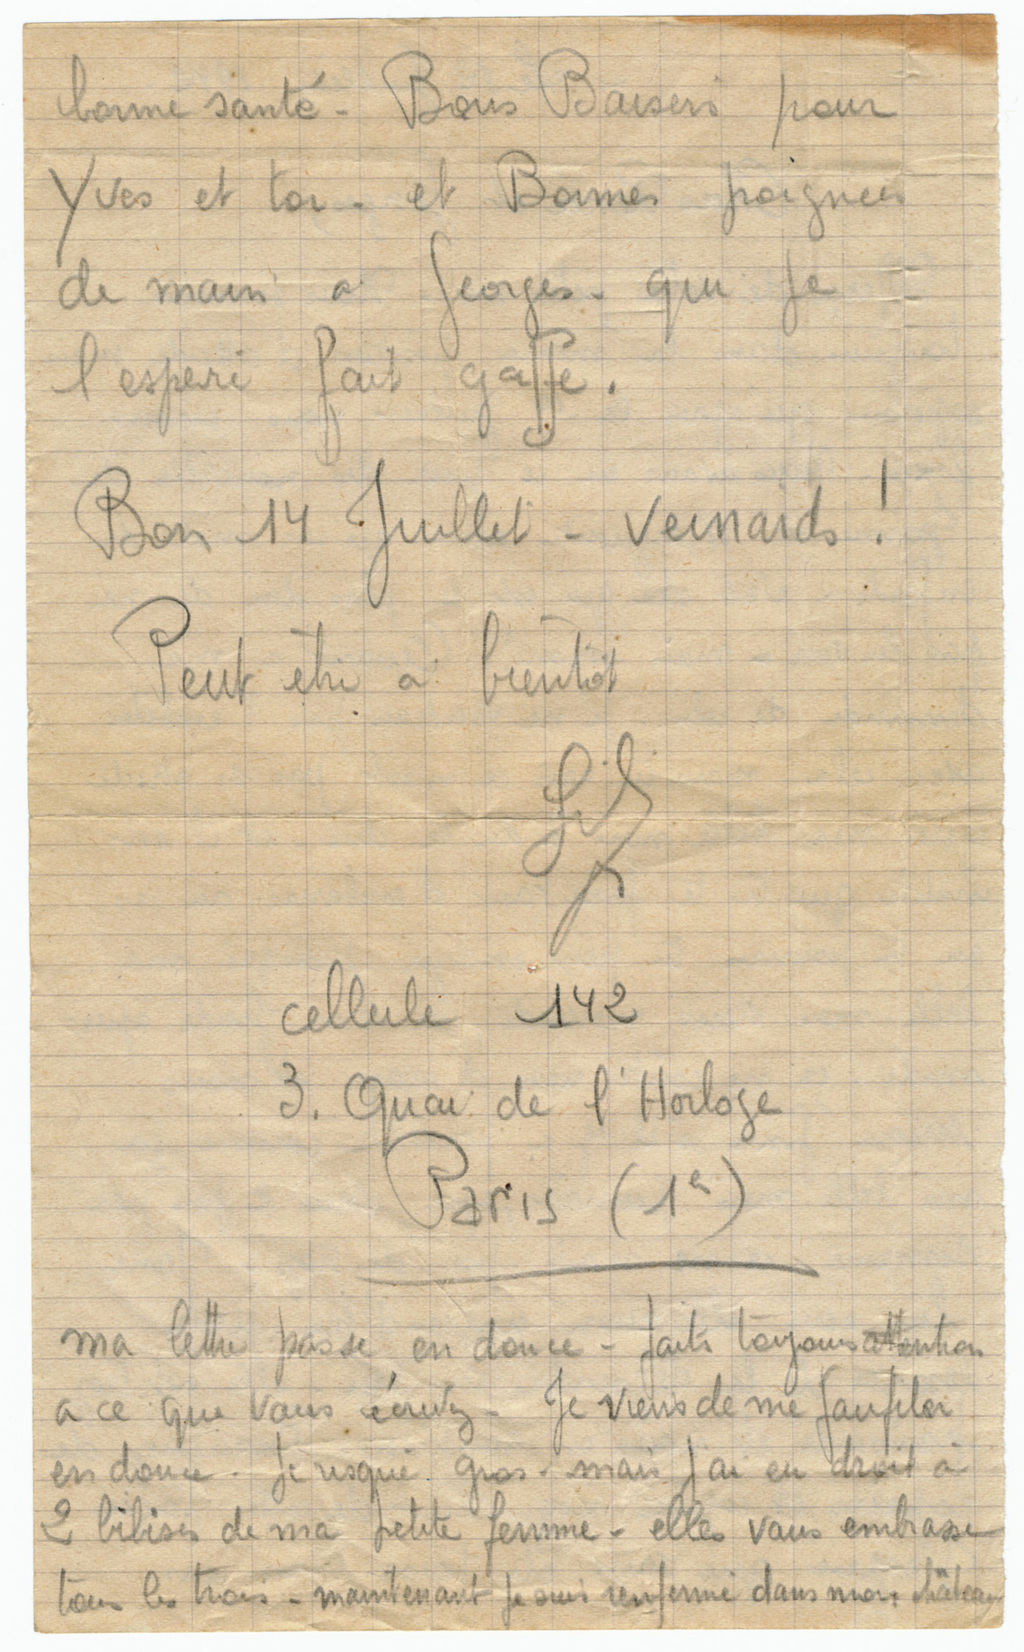 bonne santé - Bons Baisers pour
Yves et toi - et Bonnes poignées
de main à Georges - qui je
l'espere fait gaffe.
Bon 14 Juillet - veinards !
Peut être a bientôt
cellule 142
3. Quai de l'Horloge
Paris (1er)
ma lettre passe en douce - faits toujours attention
a ce que vous écrivez - Je viens de me faufiler
en douce - Je risque gros - mais j'ai eu droit à
2 bibises de ma petite femme - elles vous embrasse
tous les trois - maintenant je suis renfermé dans mon château